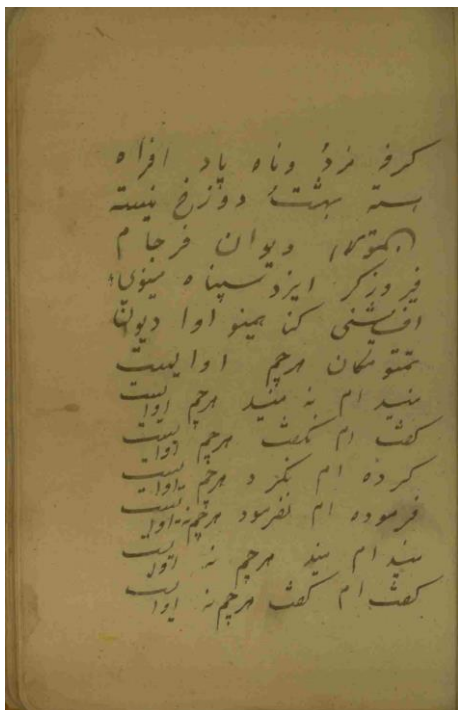 کرفه مزد وناه پاد افراه
هسته بهشت دوزخ نیسته
دیوان فرجام
فیروزکر ایزد سپناه مینوی
افزیشنی کن همینو اوا دیوان
تمتوسکان هرچم اوایست
منید ام نه منید هرچم اوایست
گفت ام نگفت هرچم اوایست
کرده ام نکرد هرچم اوایست
فرموده ام نفرمود هرچم نه اوایست
منید ام منید هرچم نه اوایست
گفت ام گفت هرچم نه اوایست